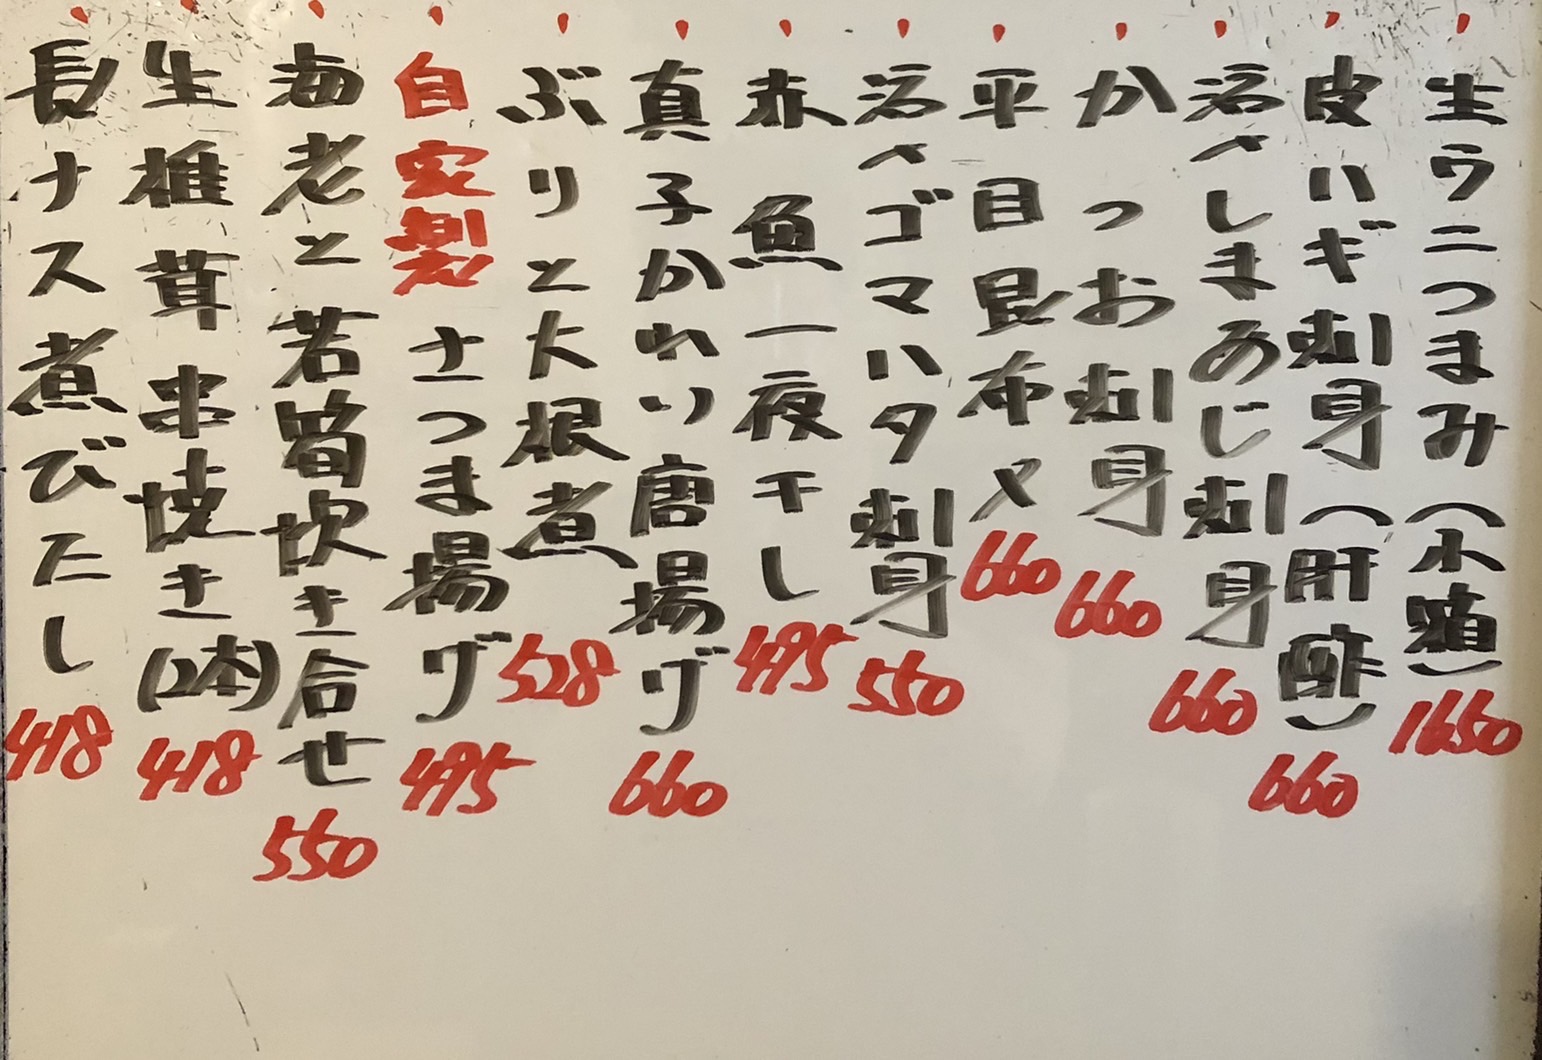 生ウニつまみ(小箱)1650
皮ハギ刺身(肝酢)660
活〆しまあじ刺身660
かつお刺身660
平目昆布〆660
活〆ゴマハタ刺身550
赤魚一夜干し495
真子かれい唐揚げ660
ぶりと大根煮528
自家製さつま揚げ495
海老と若筍炊き合せ550
生椎茸串焼き(2本)418
長ナス煮びたし418